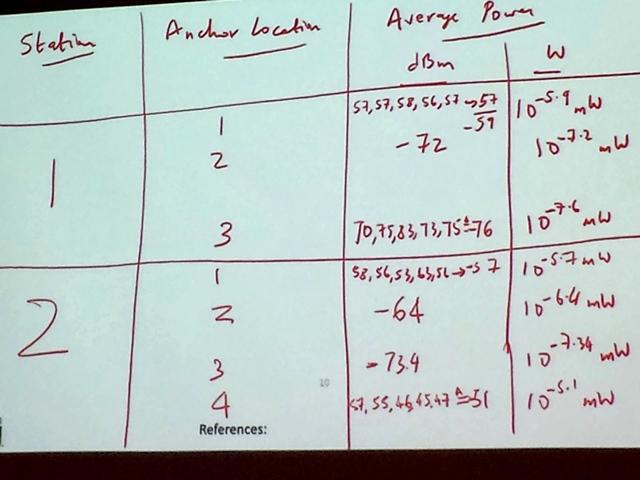 Station Anchor Location Average Power
dBm W
1 1 57, 57, 58, 56, 57 → 57 10^-5.9 mW
-59
2 -72 10^-7.2 mW
3 70, 75, 83, 73, 75 ≙ -76 10^-7.6 mW
2 1 58, 56, 53, 63, 56 → -57 10^-5.7 mW
2 -64 10^-6.4 mW
3 -73.4 10^-7.34 mW
10
4 57, 55, 46, 45, 47 ≙ -51 10^-5.1 mW
References: